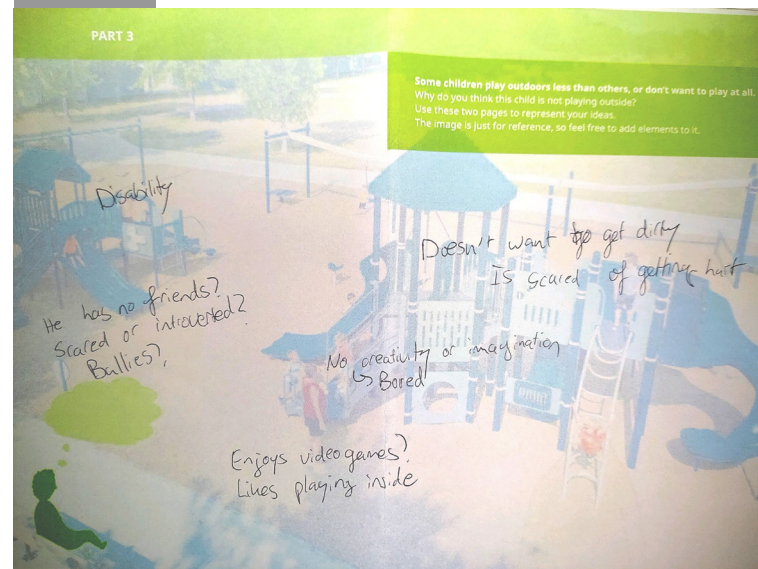 PART 3
Some children play outdoors less than others, or don't want to play at all.
Why do you think this child is not playing outside?
Use these two pages to represent your ideas.
The image is just for reference, so feel free to add elements to it.
Disability
Doesn't want to get dirty
Is scared of getting hurt
He has no friends?
Scared or introverted?
Ballies?
No creativity or imagination
↳ Bored
Enjoys videogames?
Likes playing inside